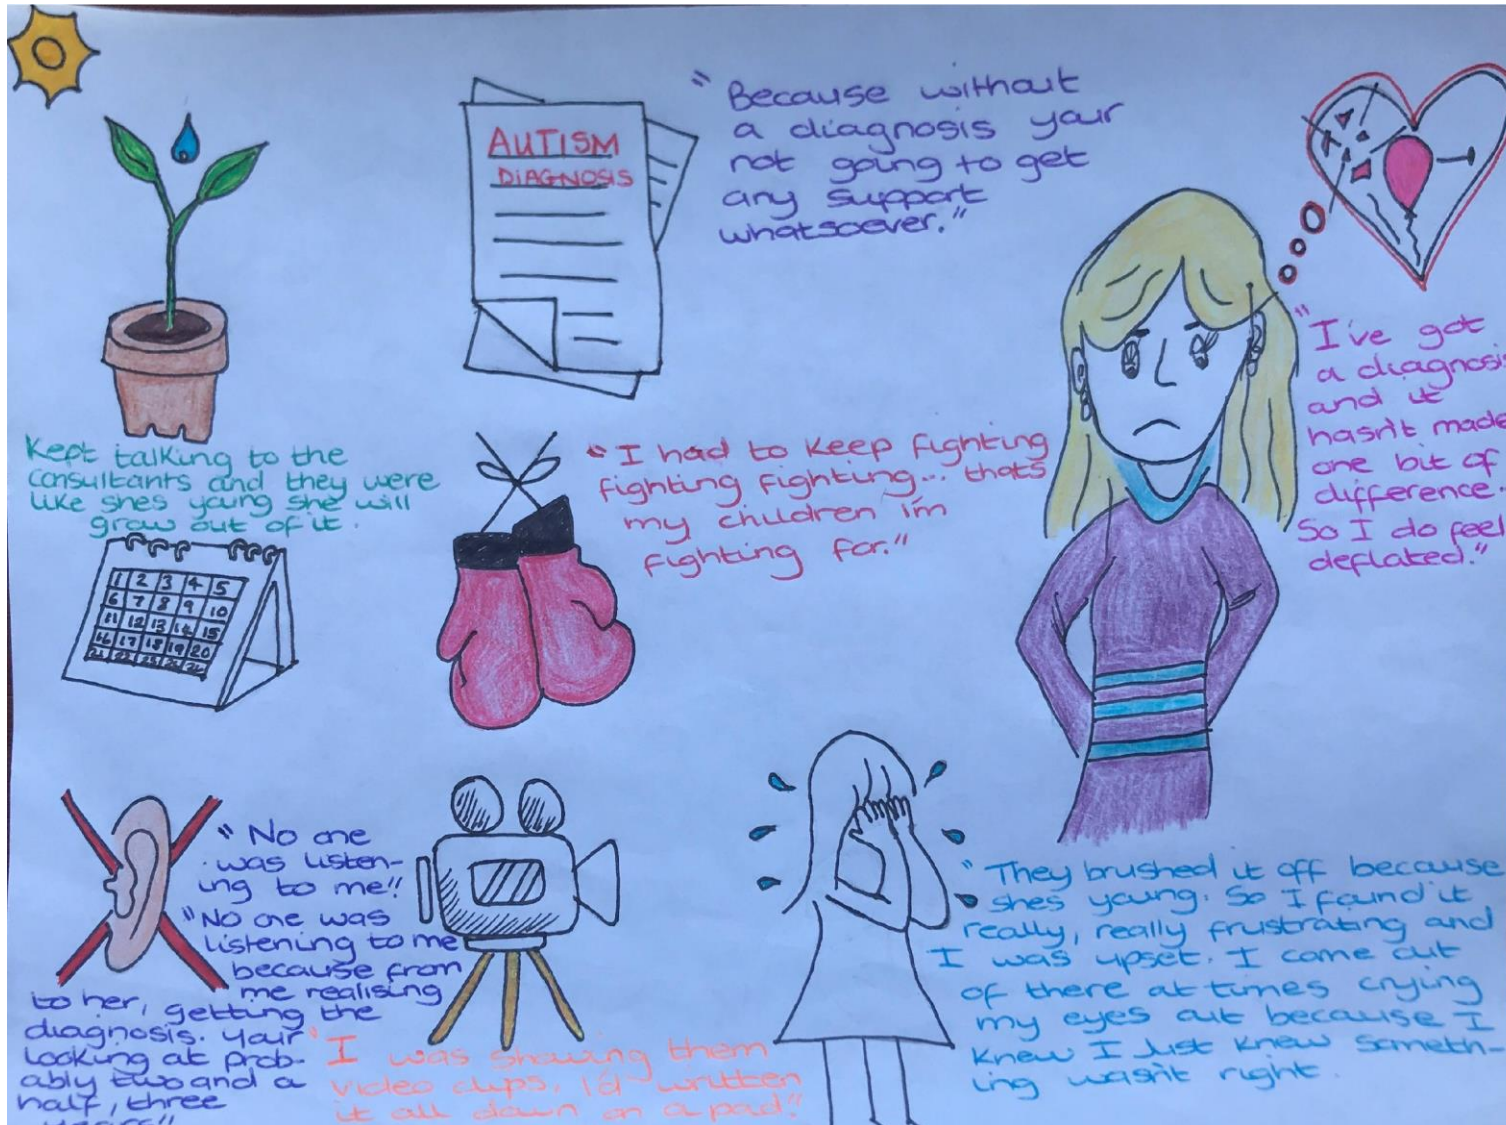 AUTISM
DIAGNOSIS
"Because without
a diagnosis your
not going to get
any support
whatsoever."
"I've got
a diagnosis
and it
hasn't made
one bit of
difference.
So I do feel
deflated."
Kept talking to the
consultants and they were
like shes young she will
grow out of it.
"I had to keep fighting
fighting fighting... thats
my children i'm
fighting for."
1 2 3 4 5
6 7 8 9 10
11 12 13 14 15
16 17 18 19 20
21 22 23
"No one
was listen-
ing to me"
"No one was
listening to me
because from
me realising
to her, getting the
diagnosis. Your
looking at prob-
ably two and a
half, three
years"
"I was showing them
video clips, I'd written
it all down on a pad."
"They brushed it off because
shes young. So I found it
really, really frustrating and
I was upset. I come out
of there at times crying
my eyes out because I
knew I just knew someth-
ing wasn't right.